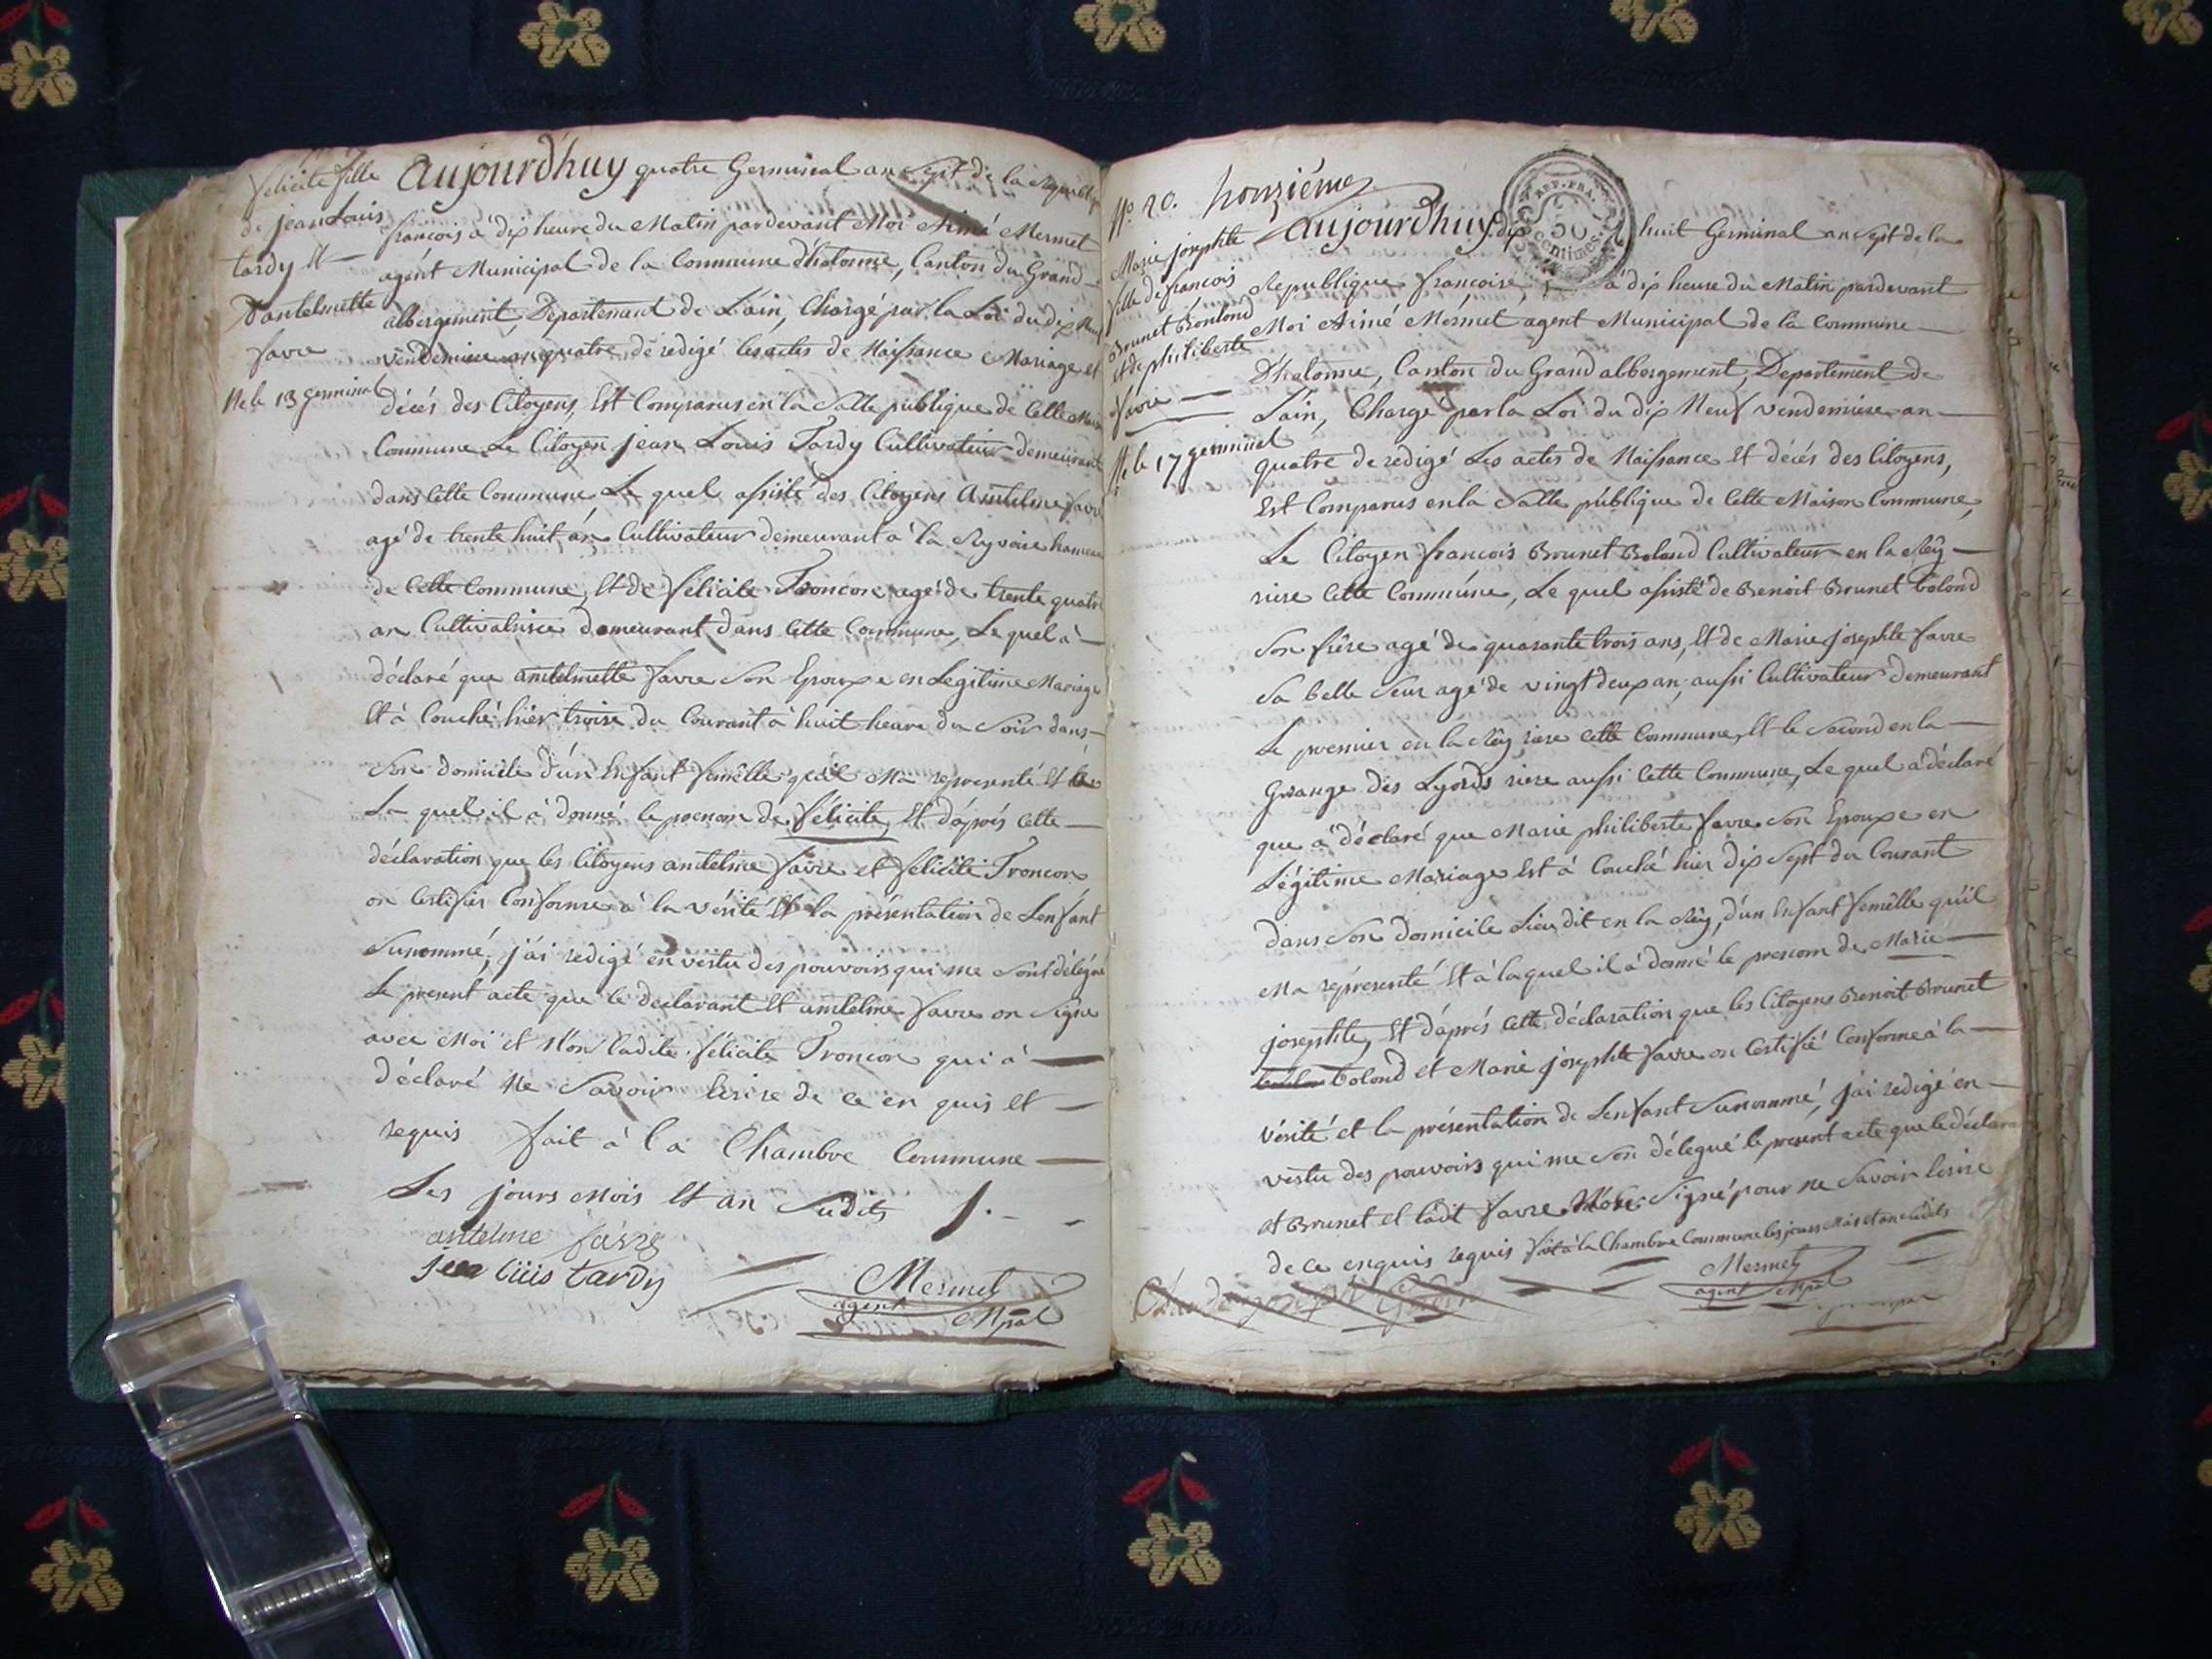 felicite fille
de jean Louis
tardy et
Dantelmette
favre
Ne le 13 germinal
Aujourd'huy quatre Germinal an Sept de la Republique
françois à dix heure du Matin pardevant Moi Aimé Mermet
agent Municipal de la Commune d'hotonne, Canton du Grand
albergement, Departement de L'ain, Chargé par la Loi du dix Neuf
vendemiere an quatre de redigé les actes de Naissance Mariage et
décés des Citoyens, Est Comparus en la Salle publique de Cette Maison
Commune Le Citoyen jean Louis Tardy Cultivateur demeurant
dans Cette Commune, Le quel assisté des Citoyens Antelme favre
agé de trente huit an Cultivateur demeurant à la Reyvoire hameau
de Cette Commune, Et de félicite Troncon agé de trente quatre
an Cultivatrice demeurant dans Cette Commune, Le quel à
déclaré que antelmette favre Son Epouxe en Legitime Mariage
Et à Couché hier troise du Courant à huit heure du Soir dans
Son domicile d'un Enfant femêlle qu'il Ma representé Et
La quel il à donné le prenom de félicite, Et d'aprés Cette
déclaration que les Citoyens antelme favre et félicite Troncon
on Certifier Conforme à la vérité Et la présentation de Lenfant
Sunommé, j'ai redigé en vertu des pouvoirs qui me Sont délégué
Le present acte que le declarant Et antelme favre on Signé
avec Moi et Non ladite félicite Troncon qui à
déclaré Ne Savoir Ecrire de ce en quis et
requis fait à la Chambre Commune
Les jours Mois Et an Sudits
antelme favre
jean luis tardy
Mermet
agent Mpal
No 20. honziéme
Marie josephte
fille de françois
Brunet Bontond
et de philiberte
favre
Ne le 17 germinal
REP. FRA.
50
Centimes
Aujourd'huy dix huit Germinal an Sept de la
Republique françoise, à dix heure du Matin pardevant
Moi Aimé Mermet agent Municipal de la Commune
D'hotonne, Canton du Grand albergement, Departement de
L'ain, Chargé par la Loi du dix Neuf vendemiere an
quatre de redigé Les actes de Naissance Et décés des Citoyens,
Est Comparus en la Salle publique de Cette Maison Commune,
Le Citoyen françois Brunet Bolond Cultivateur en la Rey
riere Cette Commune, Le quel assisté de Benoit Brunet bolond
Son frére agé de quarante trois ans, Et de Marie josephte favre
Sa belle Seur agé de vingt deux an, aussi Cultivateur demeurant
Le premier en la Rey riere Cette Commune, Et le Second en la
Grange des Lyords riere aussi Cette Commune, Le quel a déclaré
que à déclaré que Marie philiberte favre Son Epouxe en
Légitime Mariage Est à Couché hier dix Sept du Courant
dans Son domicile Lieu dit en la Rey, d'un Enfant femêlle qu'il
Ma représenté Et à laquel il à donné le prenom de Marie
josephte, Et d'aprés Cette déclaration que les Citoyens Benoit Brunet
bolond et Marie josephte favre on Certifié Conforme à la
vérité et la présentation de Lenfant Sunommé, j'ai redigé en
vertu des pouvoirs qui me Son délegué le present acte que le déclarant
et Brunet et ladit favre Signé pour ne Savoir Ecrire
de ce enquis requis fait à la Chambre Commune les jours Mois et an Sudits
Mermet
agent Mpal